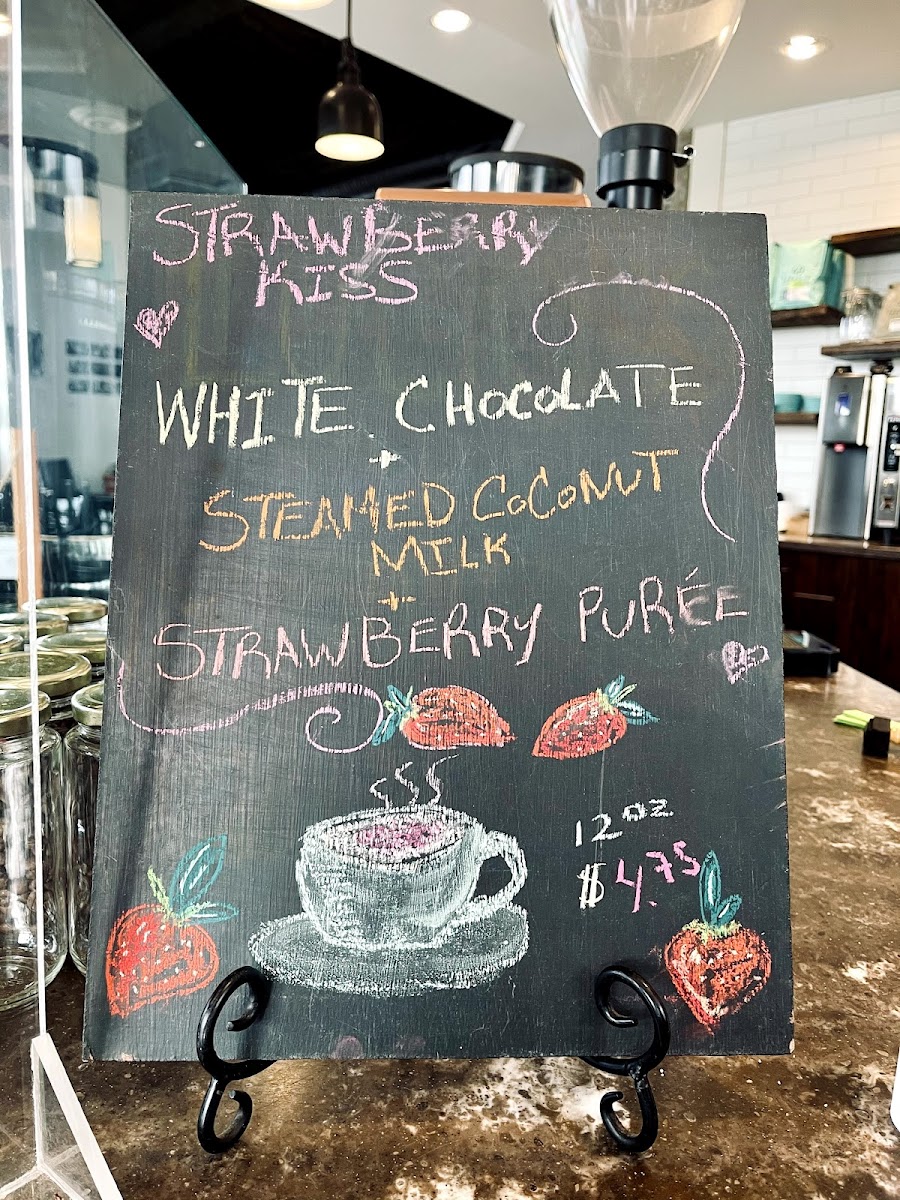 STRAWBERRY
KISS
WHITE CHOCOLATE
+
STEAMED COCONUT
MILK
+
STRAWBERRY PURÉE
12oz
$4.75